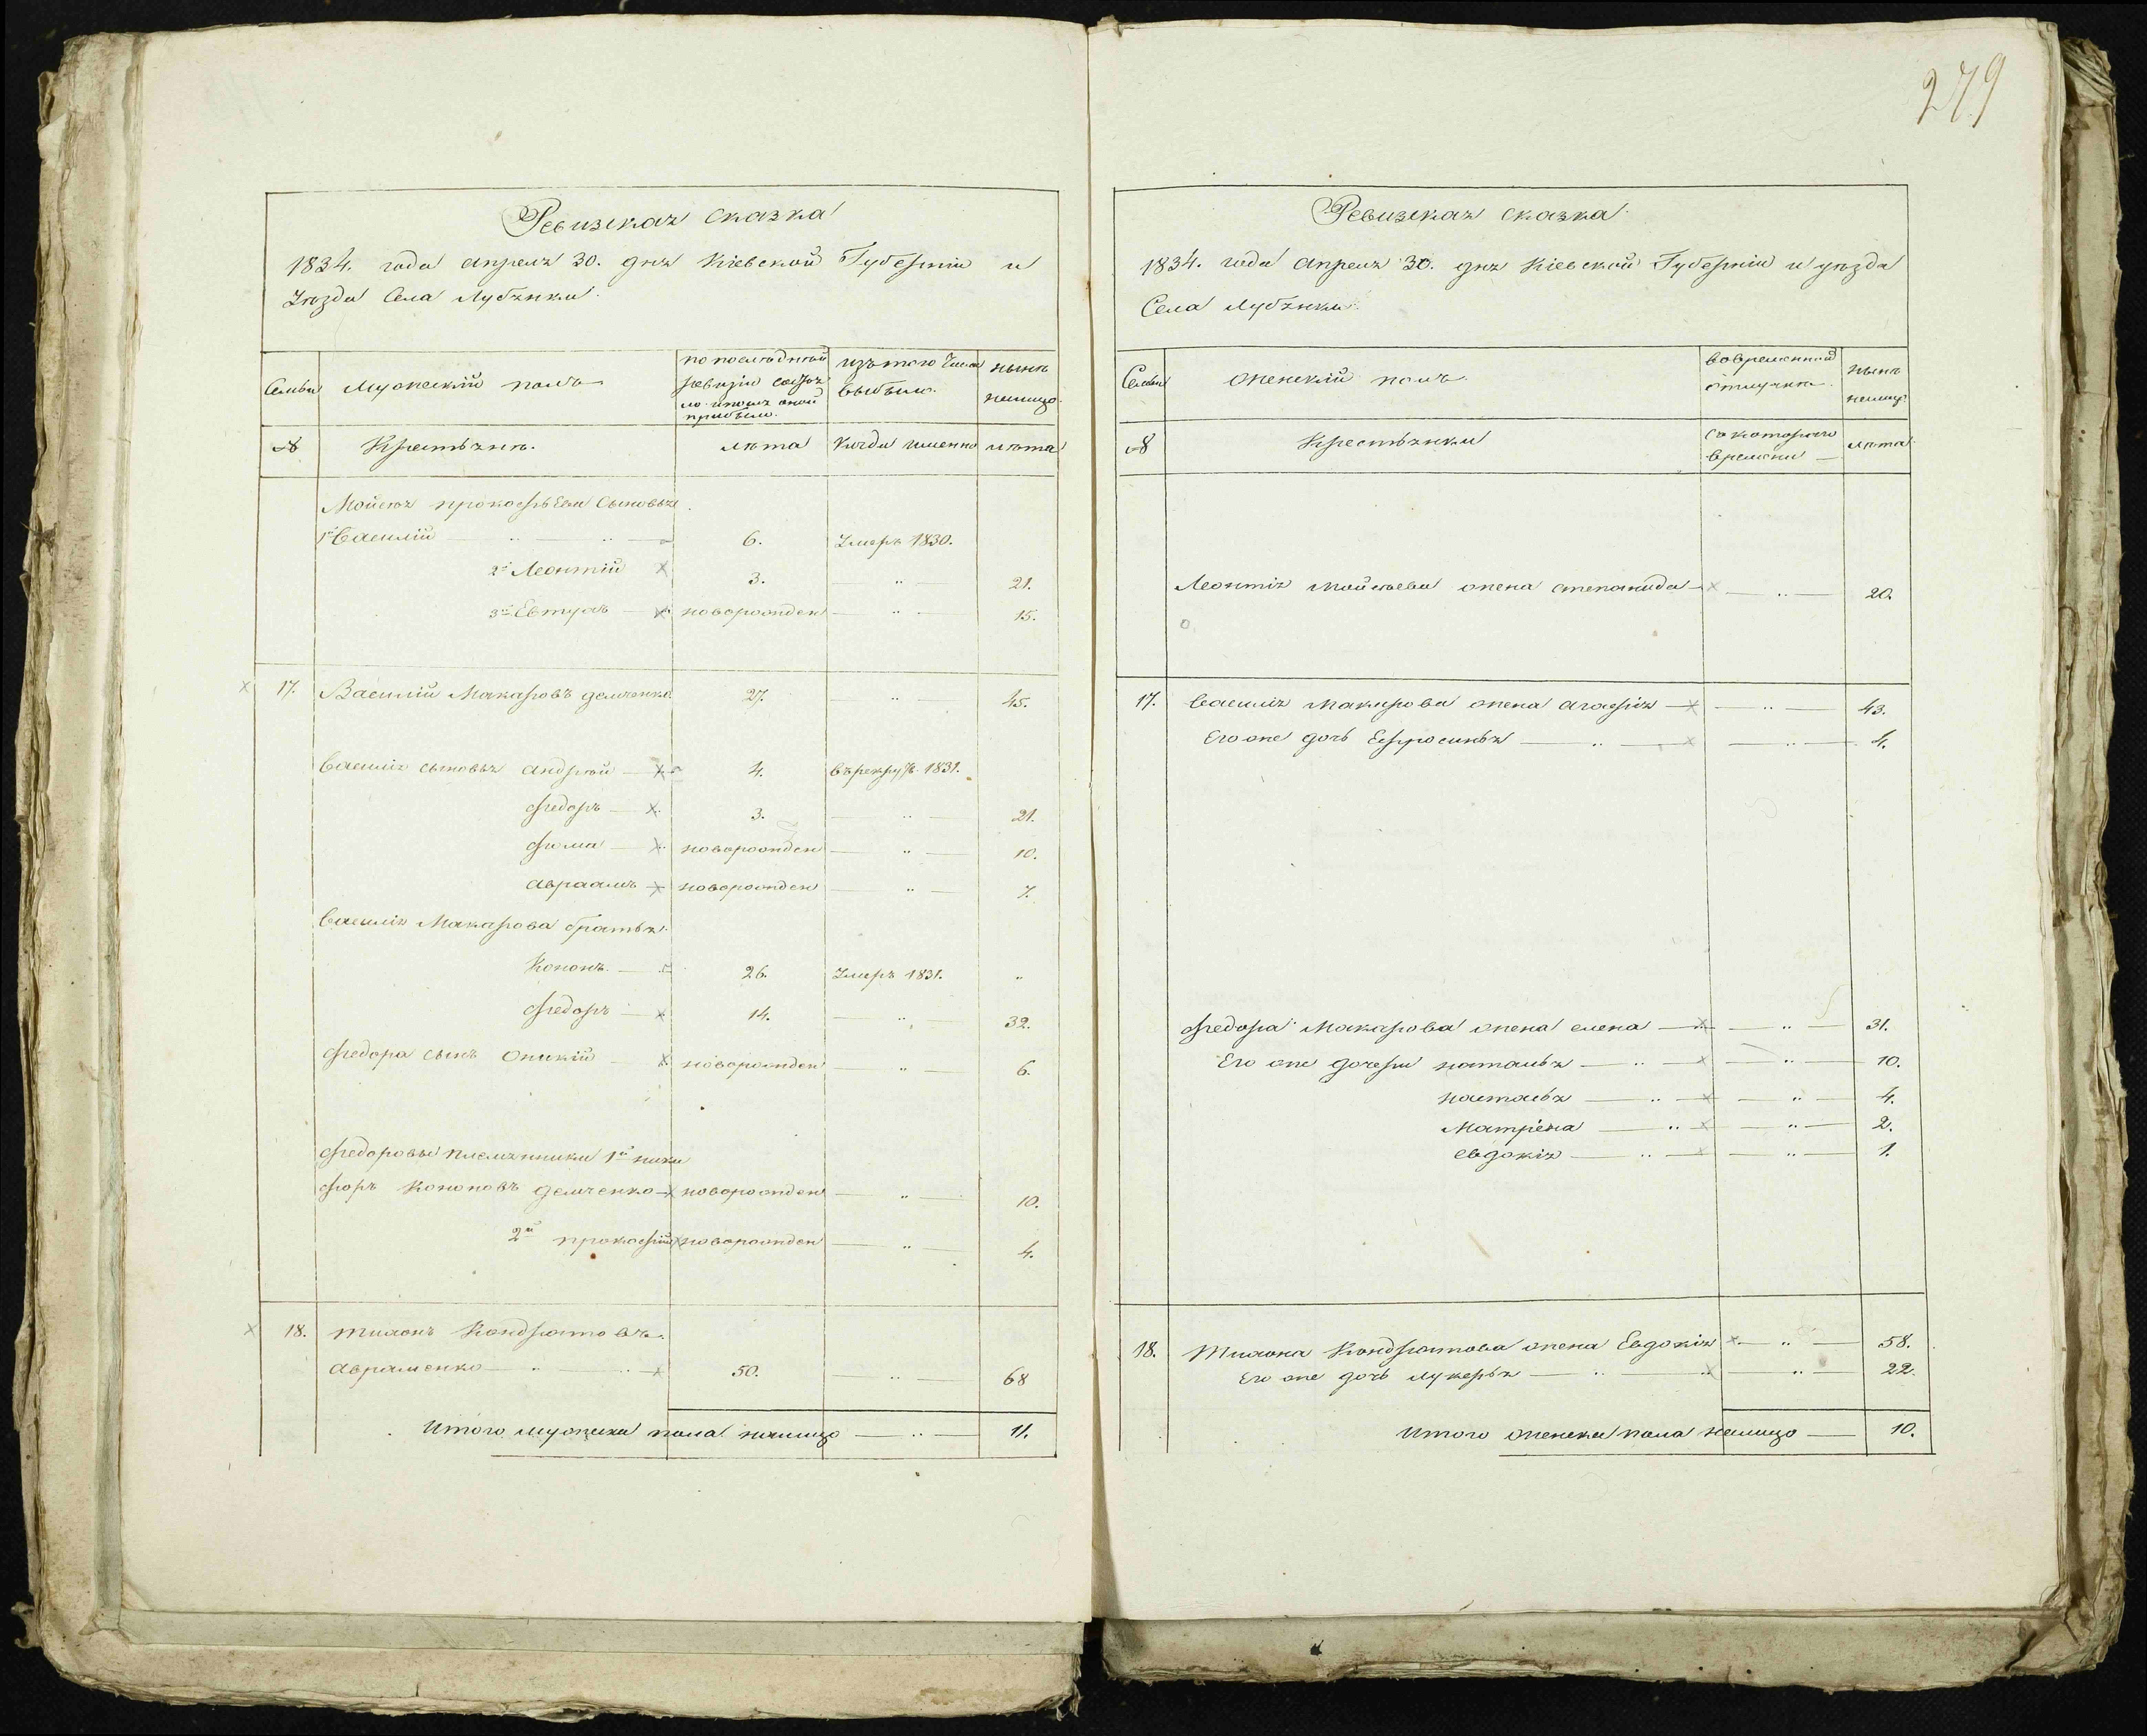 279
Ревизская сказка
1834. года апреля 30. дня Кіевской Губерніи и
Уѣзда Села Лубянки.
Семьи
Мужескій полъ
по послѣдней
ревизіи состоя
ло и послѣ оной
прибыло.
изъ того числа
выбыло.
нынѣ
налицо.
№
Крестьянѣ.
лѣта
Когда именно
лѣта
Мойсея прокофьева Сыновья
1й Василій 6. Умеръ 1830.
2й Леонтій 3. 21.
3й Евтухъ новорожден 15.
17. Василій Макаровъ демченко 27. 45.
Василія сыновья андрѣй 4. въ рекруты 1831.
Федоръ 3. 21.
Фома новорожден 10.
авраамъ новорожден 7.
Василія Макарова братья.
Кононъ 26. Умеръ 1831.
Федоръ 14. 32.
Федора сынъ Оникій новорожден 6.
Федоровы племянники 1й ники
форъ Кононовъ демченко новорожден 10.
2й прокофій новорожден 4.
18. тимонъ Кондратовъ.
авраменко 50. 68
Итого мужеска пола налицо 11.
Ревизская сказка
1834. года апреля 30. дня Кіевской Губерніи и уѣзда
Села Лубянки.
Семьи
женскій полъ.
во временной
отлучкѣ.
нынѣ
налицо
№
Крестьянки
Съ котораго
времени
лѣта
Леонтія мойсѣева жена степанида 20.
17. Василія Макарова жена агафія 43.
Его же дочь Ефросинья 4.
Федора Макарова жена елена 31.
Его же дочери наталья 10.
настасья 4.
Матрена 2.
евдокія 1.
18. Тимона Кондратова жена Евдокія 58.
Его же дочь лукерья 22.
Итого женска пола налицо 10.